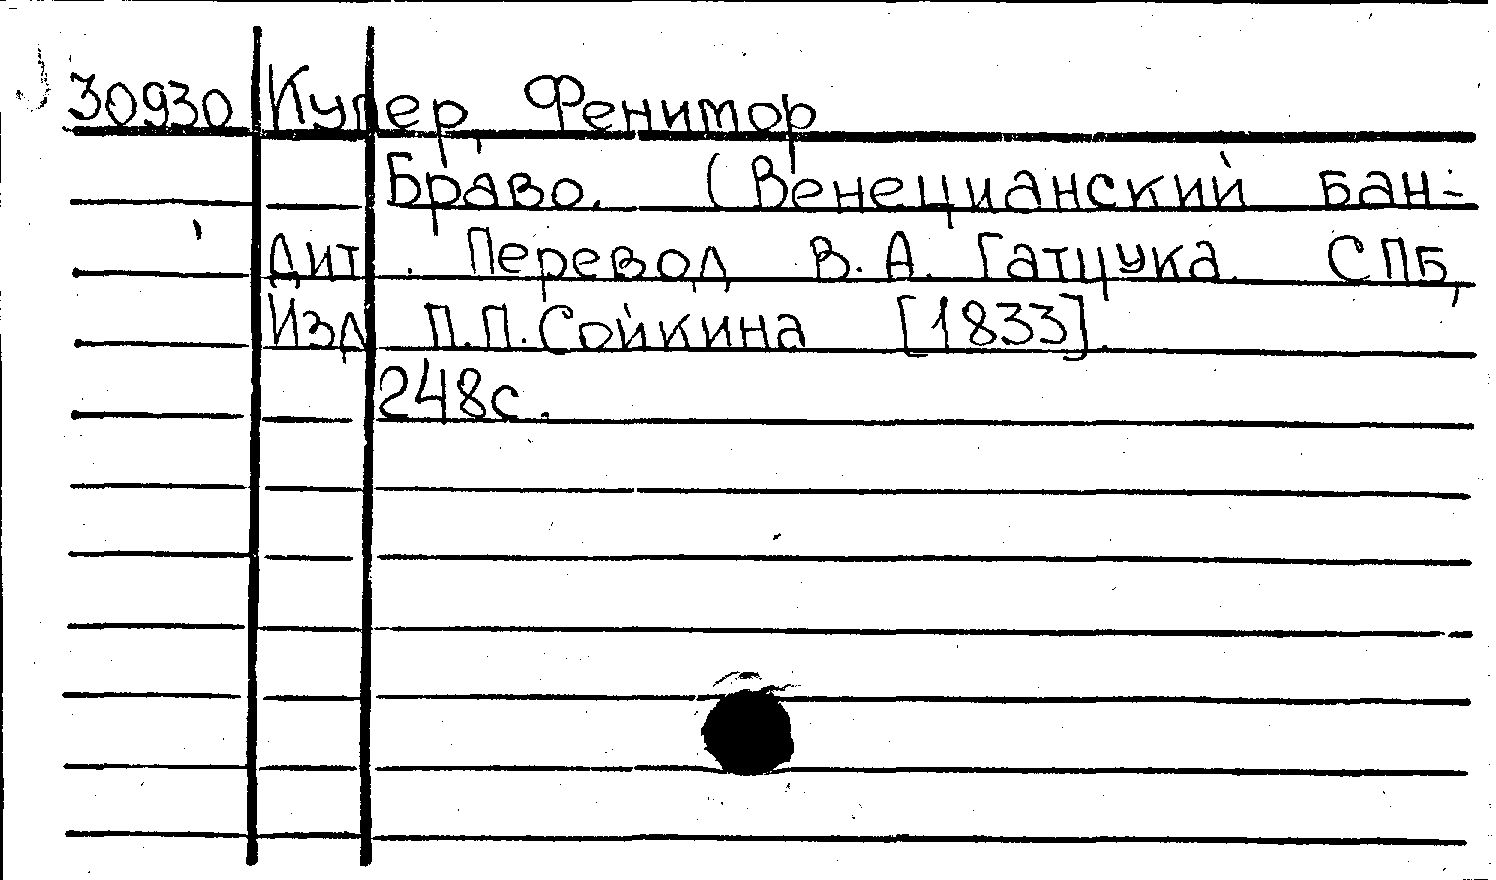 30930 Купер, Фенимор
Браво. (Венецианский бан-
дит. Перевод В.А. Гатцука. СПб,
Изд П.П.Сойкина [1833].
248с.